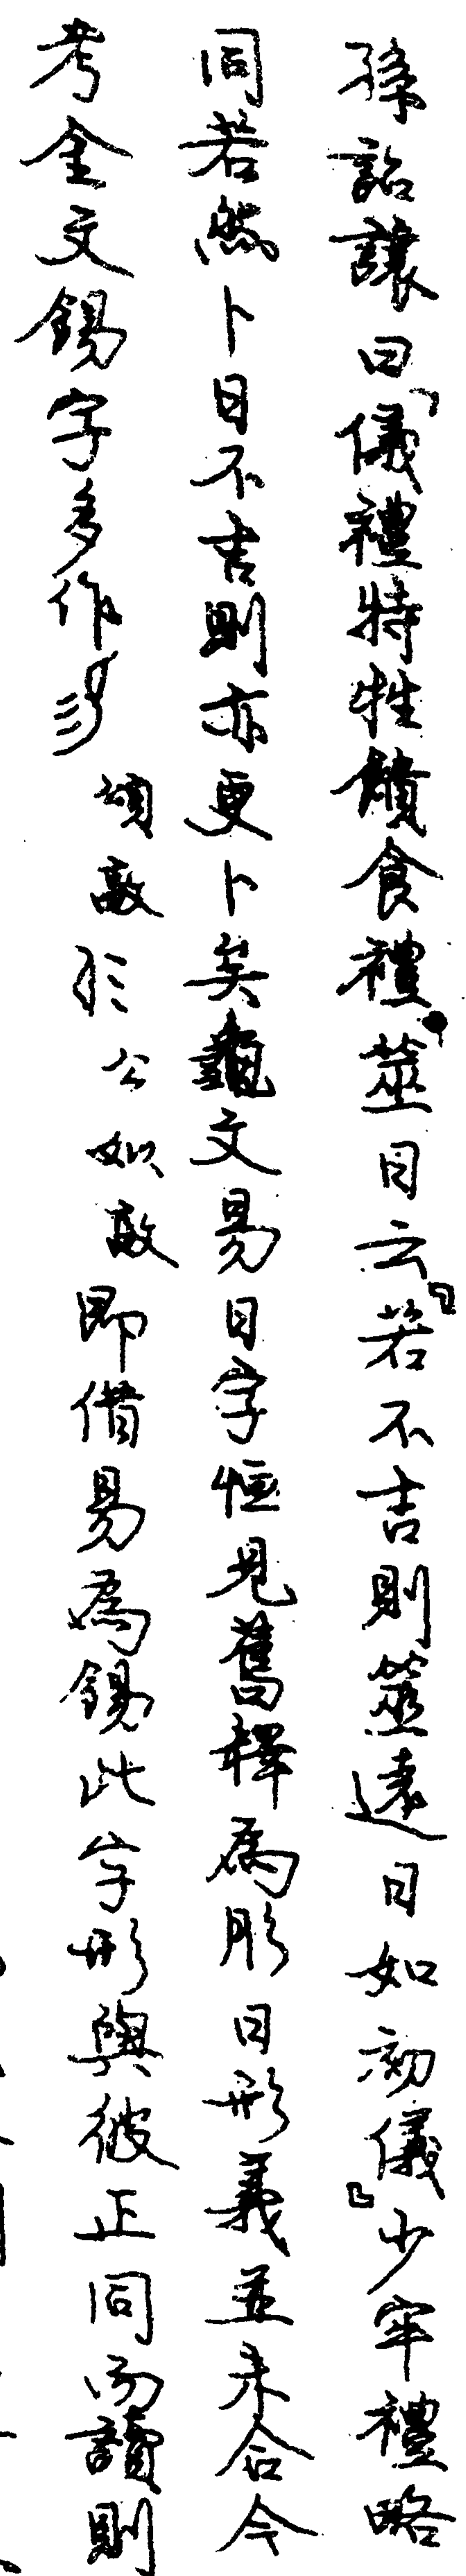 孫詒讓曰「儀禮特牲饋食禮筮日云『若不吉則筮遠日如初儀』少牢禮略
同若然卜日不吉則亦更卜矣龜文易日字恒見舊釋為肜日形義並未合今
考金文錫字多作 頌敦 公姒敦 即借易為錫此字形與彼正同而讀則